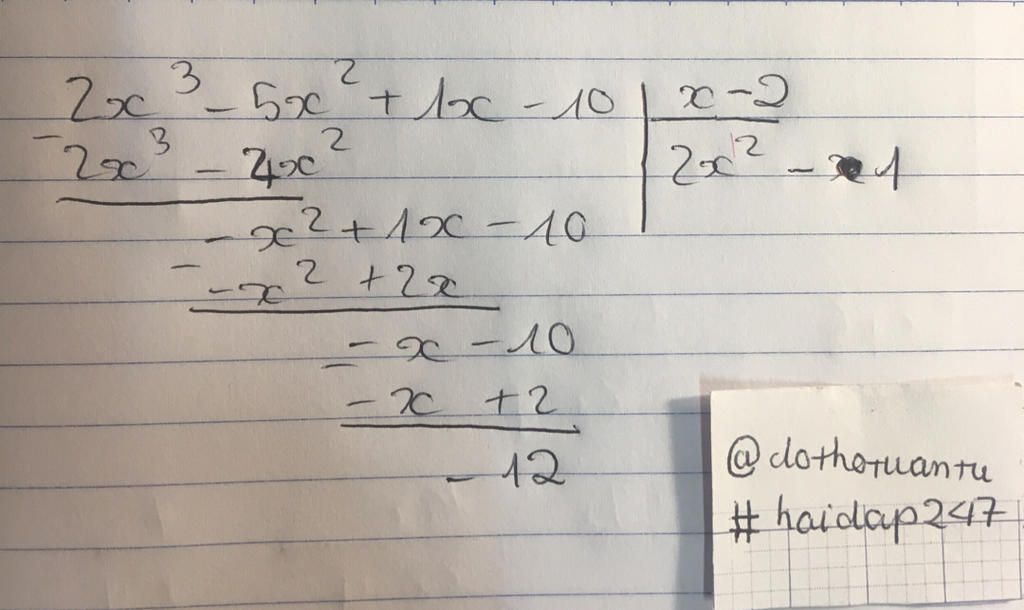 2x³ - 5x² + 1x - 10 | x - 2
- 2x³ - 4x² | 2x² - x 1
- x² + 1x - 10
- - x² + 2x
- x - 10
- - x + 2
- 12
@dothotuantu
# haidap247